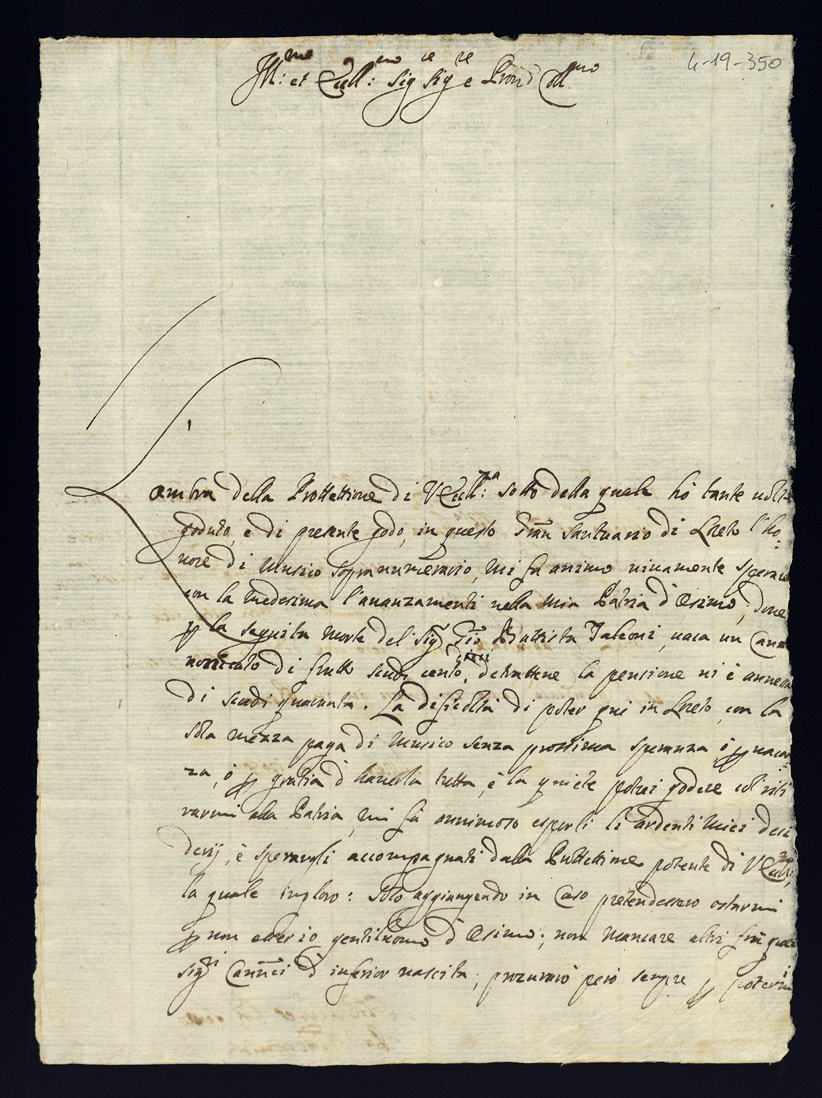 4-19-350
Ill:mo et Ecell:mo Sig Sigre e Prone Coll.mo
L'ombra della Prottettione di V Ecell:za sotto della quale hò tante uolte
goduto e di presente godo, in questo gran santuario di Loreto l'ho:
nore di Musico sopranumerario, mi fa animo uiuamente sperare
con la medesima l'auanzamenti nella mia Patria d'Osimo, doue
p la seguita morte del Sig.r Gio. Battista Falconi, uaca un Cano
nonicato di frutto scudi cento, detrattene la pensione ui è annessa
di scudi quaranta. La dificoltà di poter qui in Loreto, con la
sola mezza paga di Musico senza prossima speranza ò p uacan
za, ò p gratia d'hauerla tutta, è la quiete potrei godere col riti
rarmi alla Patria, mi fa animoso esporli li ardenti miei desi
derij, è sperarli accompagnati dalla Prottettione potente di V Ecell:za,
la quale imploro: Solo aggiungendo in caso pretendessero ostarmi
p non esser io gentilhuomo d'Osimo, non mancare altri frà quei
sig.ri Can.ci d'inferior nascita, procurarò però sempre p potermi